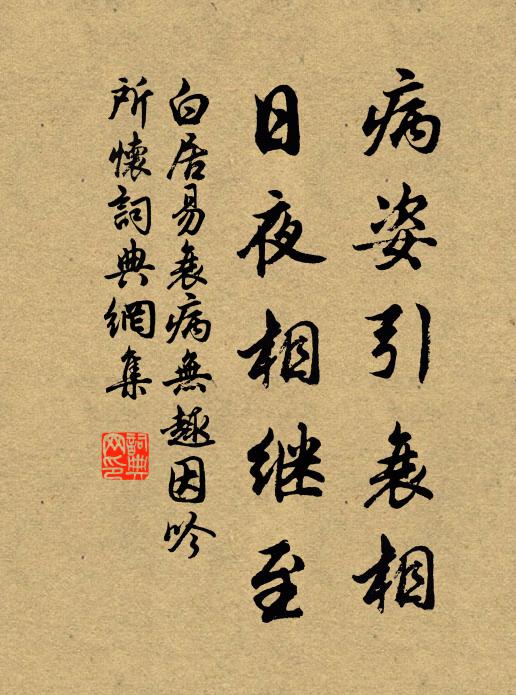 病姿引衰相
日夜相继至
白居易衰病無趣因吟
所懷詞典網集
詞典网印